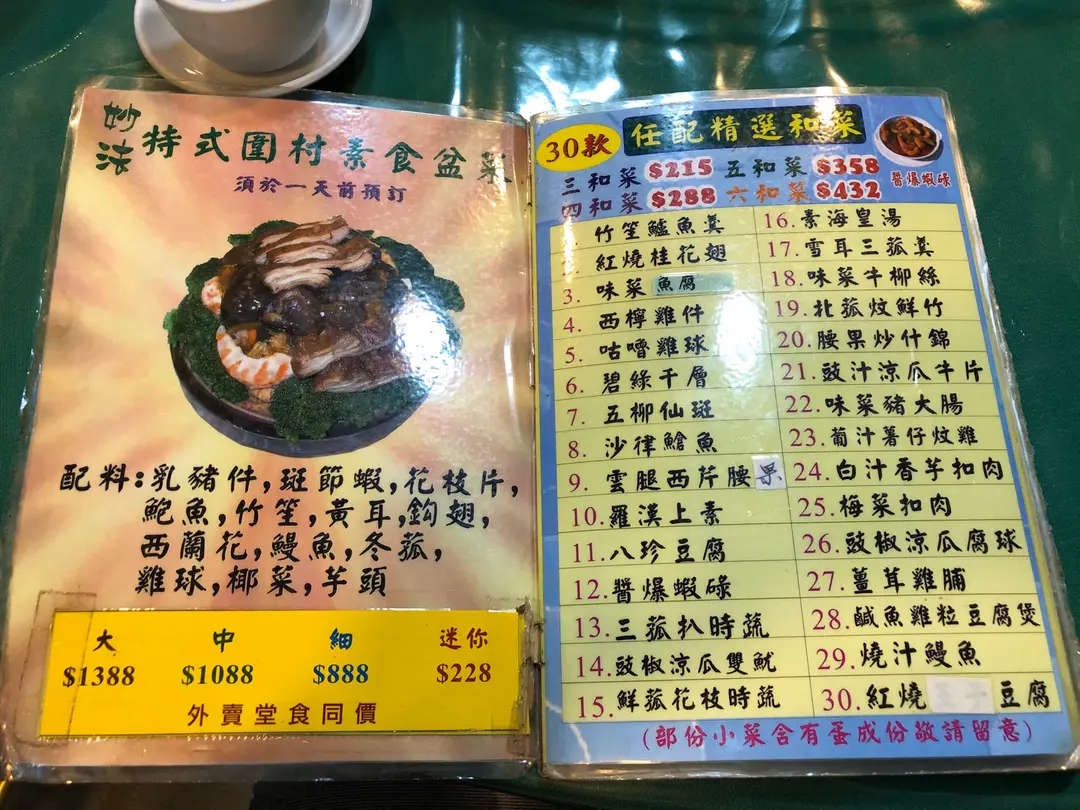 妙法 特式圍村素食盆菜
須於一天前預訂
配料:乳豬件,斑節蝦,花枝片,
鮑魚,竹笙,黃耳,鈎翅,
西蘭花,鰻魚,冬菰,
雞球,椰菜,芋頭
大 中 細 迷你
$1388 $1088 $888 $228
外賣堂食同價
30款 任配精選和菜
三和菜 $215 五和菜 $358
四和菜 $288 六和菜 $432
醬爆蝦碌
竹笙鱸魚羹
紅燒桂花翅
3. 味菜魚腐
4. 西檸雞件
5. 咕嚕雞球
6. 碧綠千層
7. 五柳仙斑
8. 沙律鎗魚
9. 雲腿西芹腰果
10. 羅漢上素
11. 八珍豆腐
12. 醬爆蝦碌
13. 三菰扒時蔬
14. 豉椒涼瓜雙魷
15. 鮮菰花枝時蔬
16. 素海皇湯
17. 雪耳三菰羹
18. 味菜牛柳絲
19. 北菰炆鮮竹
20. 腰果炒什錦
21. 豉汁涼瓜牛片
22. 味菜豬大腸
23. 葡汁薯仔炆雞
24. 白汁香芋扣肉
25. 梅菜扣肉
26. 豉椒涼瓜腐球
27. 薑茸雞脯
28. 鹹魚雞粒豆腐煲
29. 燒汁鰻魚
30. 紅燒 豆腐
(部份小菜含有蛋成份敬請留意)